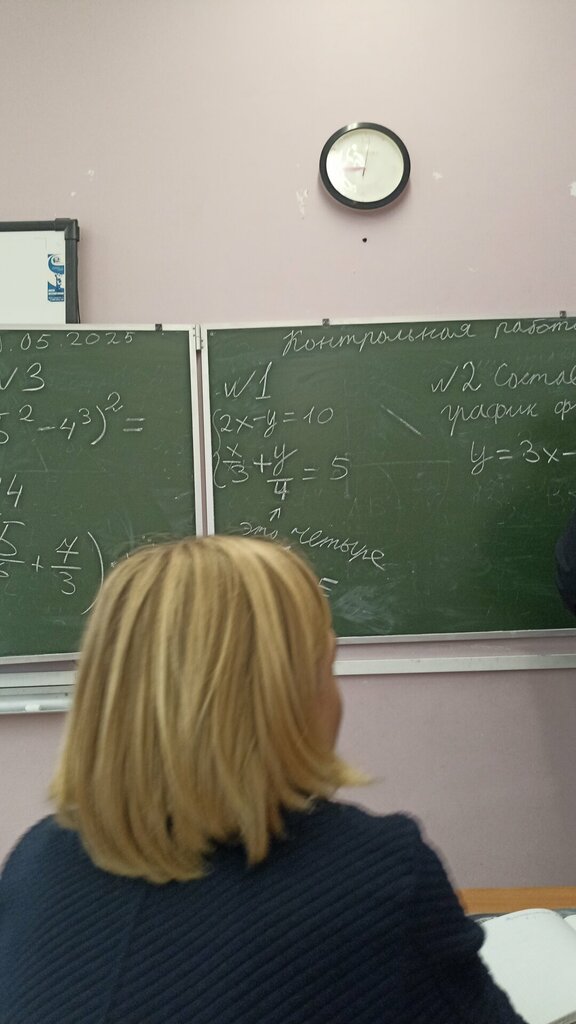 .05.2025
√3
5² - 4³)² =
4
5
+ 7/3)
Контрольная работа
№1
{2x - y = 10
{x/3 + y/4 = 5
↑
это четыре
№2 Соста
график ф
y = 3x -